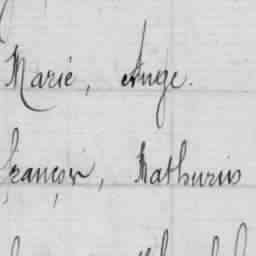 Marie, Ange.
François, Mathurin